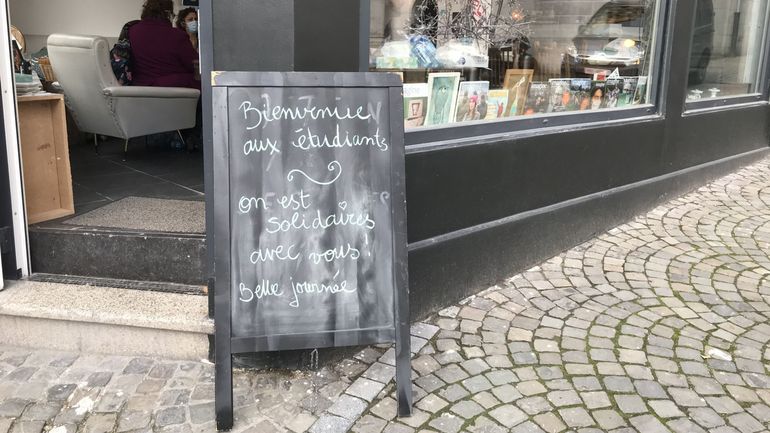 Bienvenue
aux étudiants
on est
solidaires
avec vous !
Belle journée